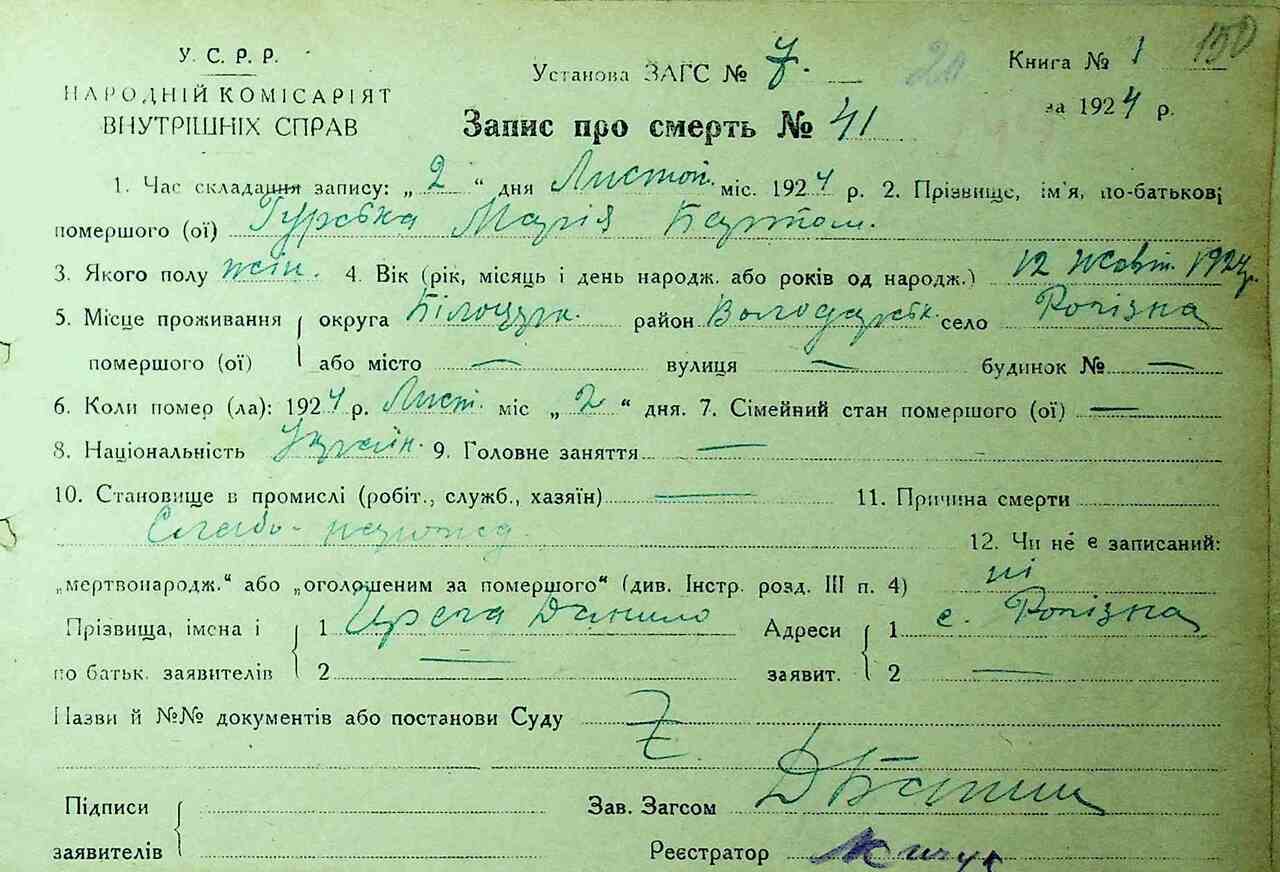 150
У. С. Р. Р.
НАРОДНІЙ КОМІСАРІЯТ
ВНУТРІШНІХ СПРАВ
Установа ЗАГС № 7.
Книга № 1
за 1924 р.
Запис про смерть № 41
1. Час складання запису: „ 2 “ дня Листоп. міс. 1924 р. 2. Прізвище, ім'я, по-батькові
помершого (ої) Гурська Марія Бартол.
3. Якого полу жін. 4. Вік (рік, місяць і день народж. або років од народж.) 12 Жовт. 1924 р.
5. Місце проживання округа Білоцерк. район Володарськ. село Рогізна
помершого (ої) або місто — вулиця — будинок № —
6. Коли помер (ла): 1924 р. Лист. міс „ 2 “ дня. 7. Сімейний стан помершого (ої) —
8. Національність Україн. 9. Головне заняття —
10. Становище в промислі (робіт., служб., хазяїн) — 11. Причина смерти
Слабо-
12. Чи не є записаний:
„мертвонародж.“ або „оголошеним за помершого“ (див. Інстр. розд. III п. 4) ні
Прізвища, імена і 1 Данило Адреси 1 с. Рогізна
по батьк. заявителів 2 — заявит. 2 —
Назви й №№ документів або постанови Суду
Підписи Зав. Загсом
заявителів Реєстратор